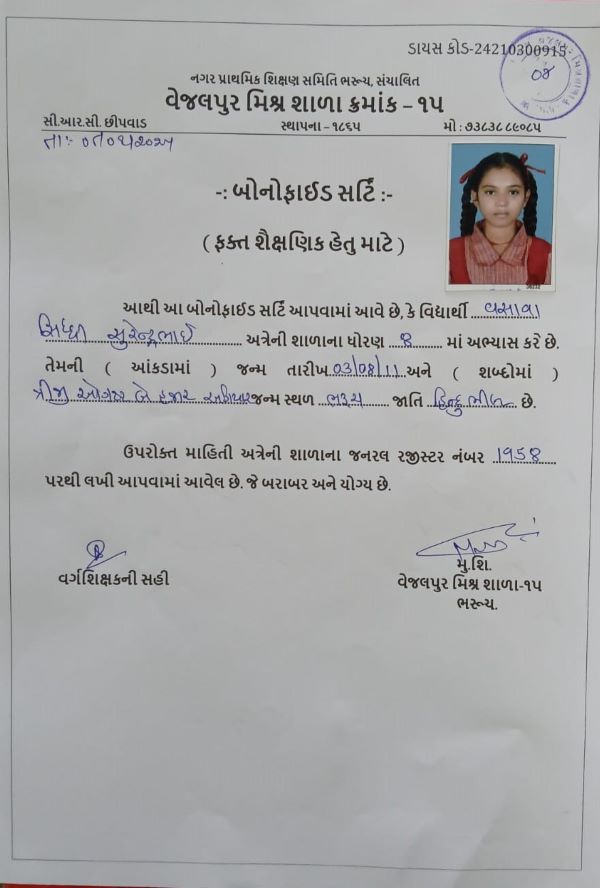 ડાયસ કોડ-24210300915
08
નગર પ્રાથમિક શિક્ષણ સમિતિ ભરૂચ, સંચાલિત
વેજલપુર મિશ્ર શાળા ક્રમાંક – ૧૫
સી.આર.સી. છીપવાડ સ્થાપના – ૧૮૬૫ મો : ૭૩૮૩૮ ૮૯૦૮૫
તા:-
-: બોનોફાઈડ સર્ટિ :-
( ફક્ત શૈક્ષણિક હેતુ માટે )
આથી આ બોનોફાઈડ સર્ટિ આપવામાં આવે છે, કે વિદ્યાર્થી વસાવા
સુરેન્દ્રભાઈ અત્રેની શાળાના ધોરણ ૪ માં અભ્યાસ કરે છે.
તેમની ( આંકડામાં ) જન્મ તારીખ 03/08/11 અને ( શબ્દોમાં )
ત્રીજી ઓગસ્ટ બે હજાર અગિયાર જન્મ સ્થળ ભરૂચ જાતિ હિન્દુ ભીલ છે.
ઉપરોક્ત માહિતી અત્રેની શાળાના જનરલ રજીસ્ટર નંબર 1958
પરથી લખી આપવામાં આવેલ છે. જે બરાબર અને યોગ્ય છે.
વર્ગશિક્ષકની સહી
મુ.શિ.
વેજલપુર મિશ્ર શાળા-૧૫
ભરૂચ.